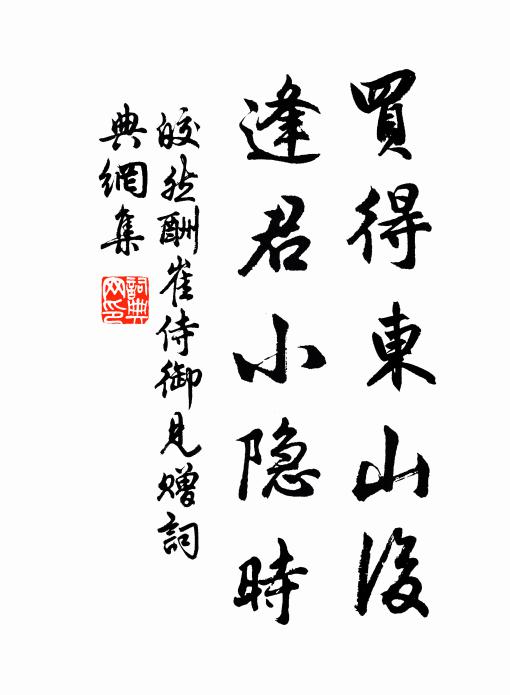 買得東山後
逢君小隐時
皎然酬崔侍御見贈詞
典網集
詞典網印